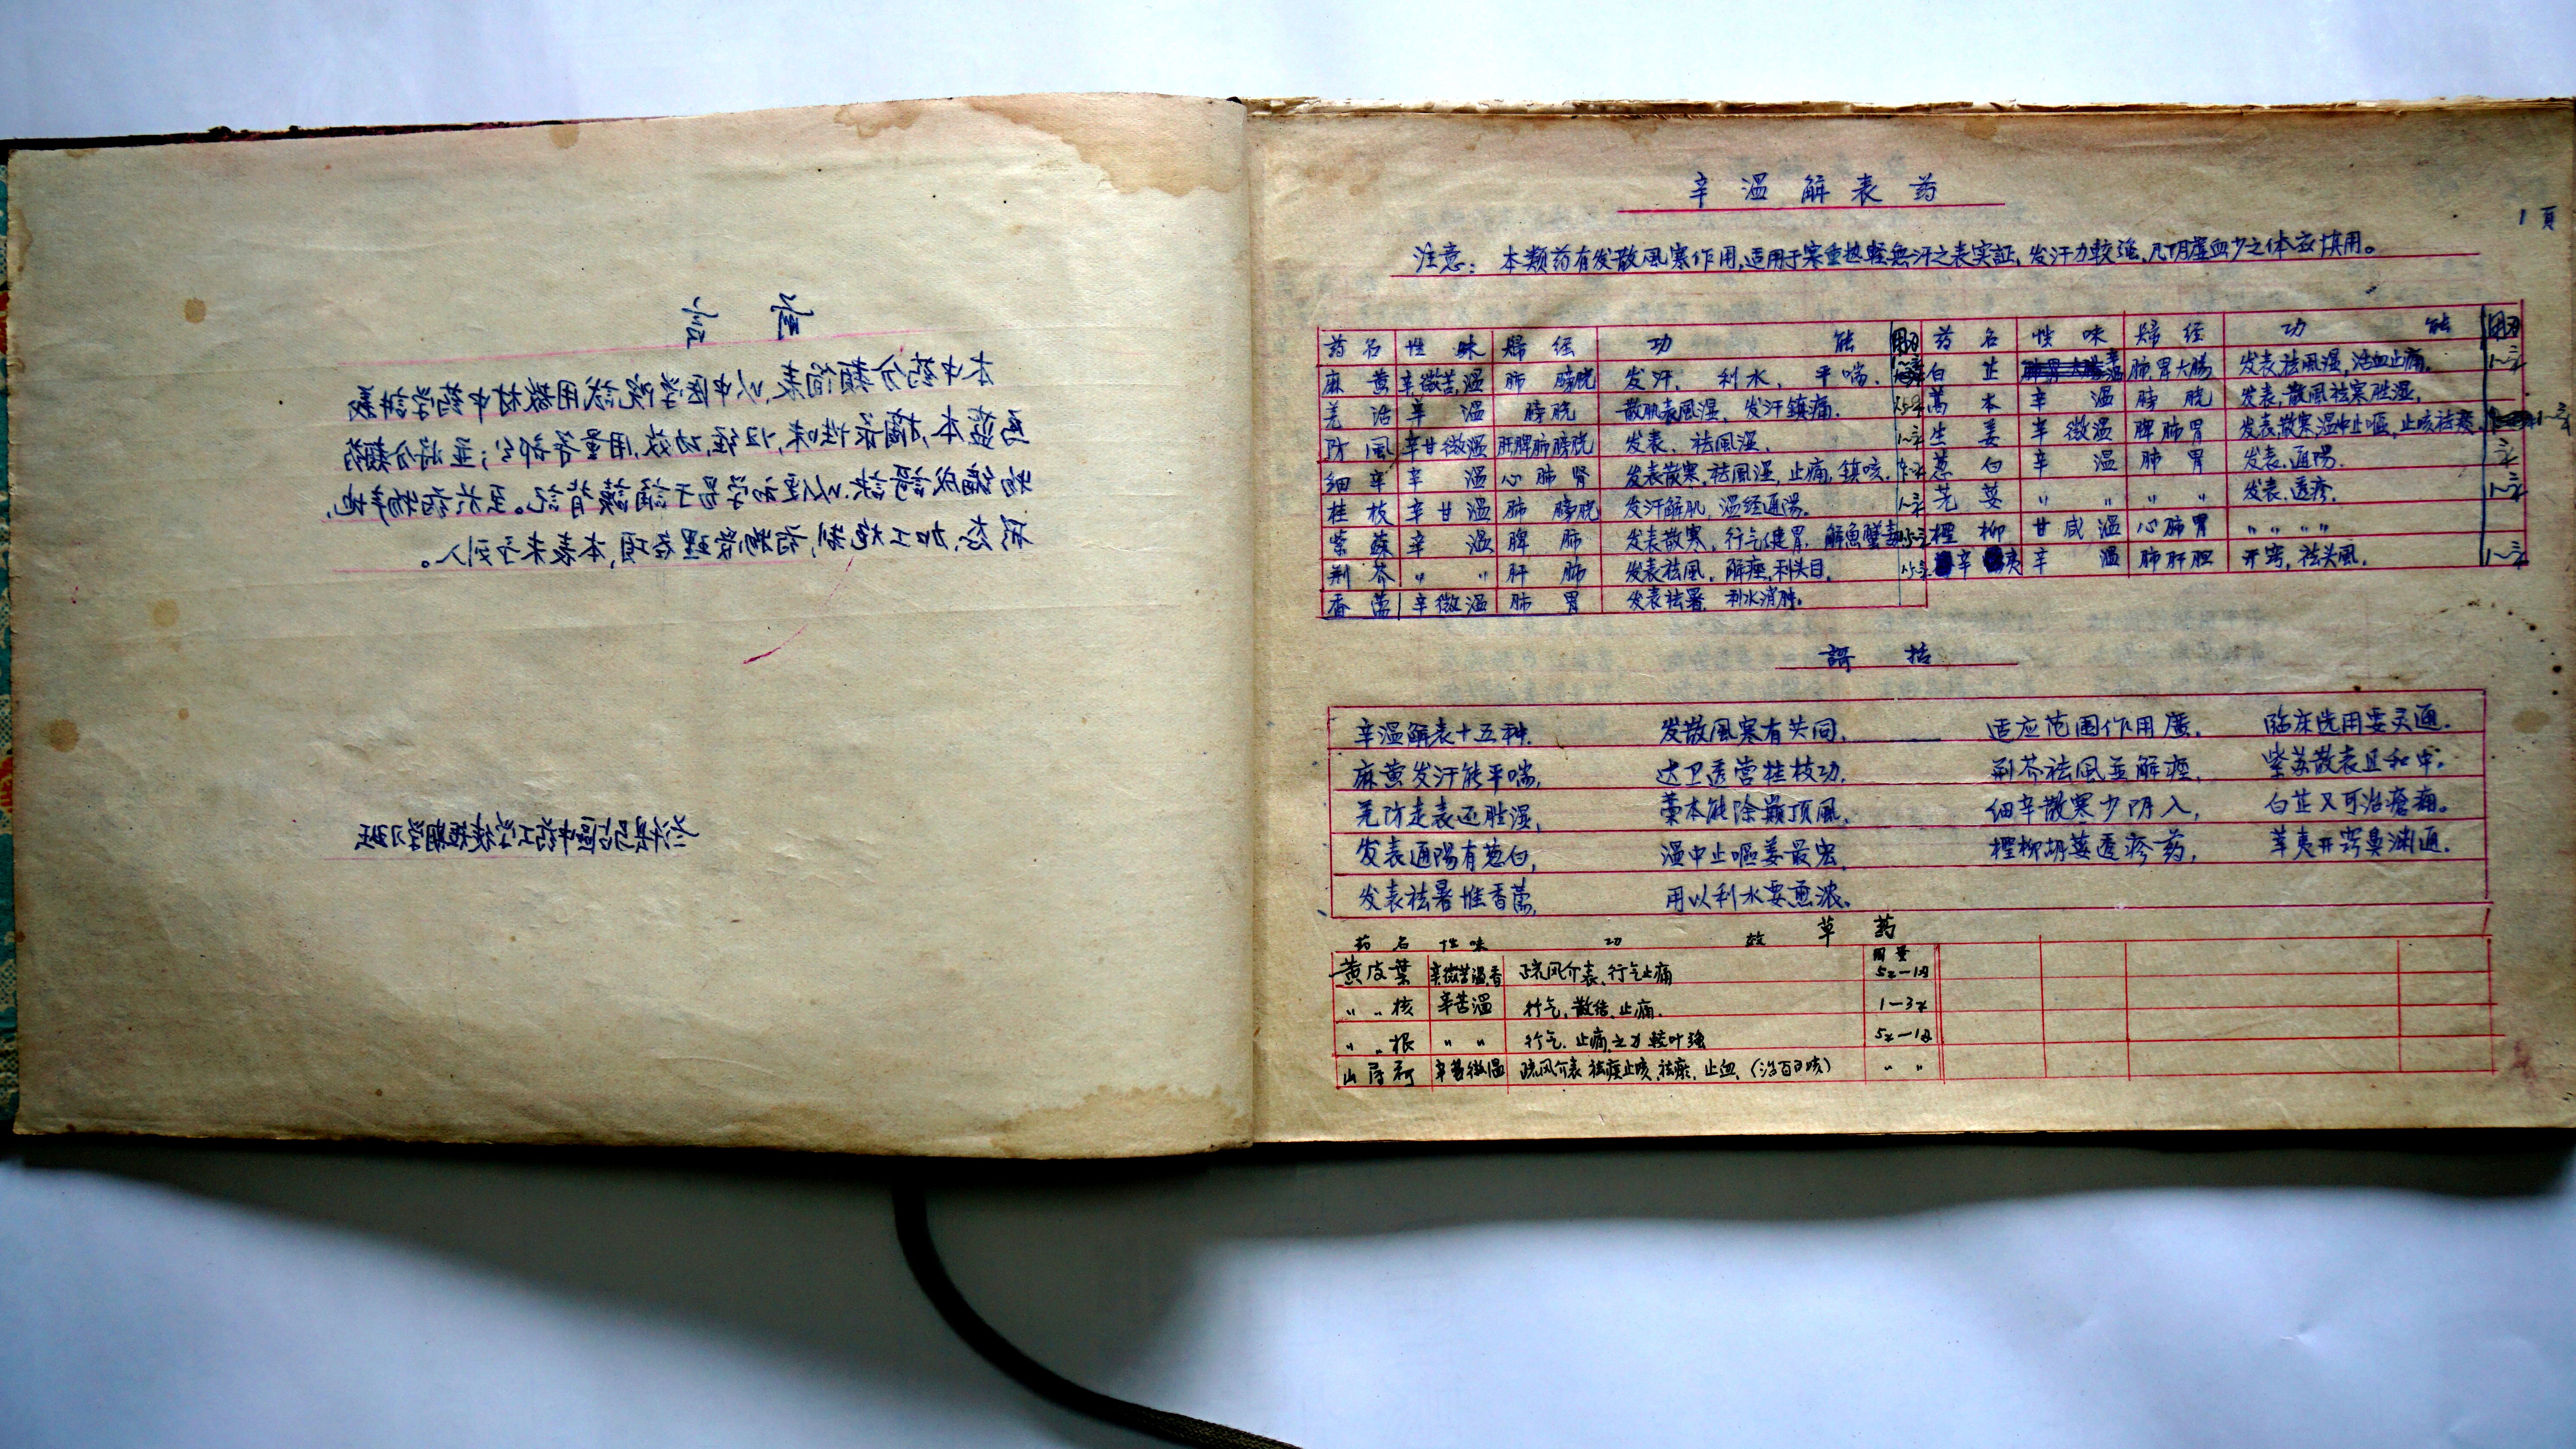 前言
本中药分類简表,以中医学院試用教材中药学講義
為藍本,摘录性味,归经,功效,用量等部分;並将分類药
物編成謌訣,以便初学易于誦讀背記。至於药物產地,
形态,加工炮制,药物管理各項,本表未予列入。
中药工学徒短期学习班
1頁
辛温解表药
注意: 本類药有发散風寒作用,适用于寒重热輕無汗之表实証,发汗力較强,凡阴虚血少之体应慎用。
药名 性味 歸经 功能 用量 药名 性味 歸经 功能 用量
麻黄 辛微苦温 肺膀胱 发汗,利水,平喘. 白芷 温 肺胃大腸 发表,祛風湿,活血止痛. 1~3
羌活 辛温 膀胱 散肌表風湿,发汗鎮痛. 藁本 辛温 膀胱 发表,散風祛寒胜湿,
防風 辛甘微温 肝脾肺膀胱 发表,祛風湿, 生姜 辛微温 脾肺胃 发表,散寒,温中止嘔,止咳祛痰.
细辛 辛温 心肺腎 发表散寒,祛風湿,止痛,鎮咳. 葱白 辛温 肺胃 发表,通陽.
桂枝 辛甘温 肺膀胱 发汗解肌,温经通陽. 芫荽 〃 〃 〃 〃 发表,透疹.
紫蘇 辛温 脾肺 发表散寒,行气健胃,解魚蟹毒 檉柳 甘咸温 心肺胃 〃〃〃〃
荆芥 〃 〃 肝肺 发表祛風,解痙,利头目. 辛夷 辛温 肺肝胆 开窍,祛头風.
香薷 辛微温 肺胃 发表祛暑,利水消肿。
謌括
辛温解表十五种, 发散風寒有共同, 适应范围作用廣, 临床选用要灵通.
麻黄发汗能平喘, 达卫透营桂枝功, 荆芥祛風並解痙, 紫苏散表且和中.
羌防走表还胜湿, 藁本能除巅頂風, 细辛散寒少阴入, 白芷又可治瘡痈。
发表通陽有葱白, 温中止嘔姜最宏, 檉柳胡荽透疹药, 辛夷开窍鼻渊通.
发表祛暑惟香薷, 用以利水要煎浓。
草药
药名 性味 功效 用量
黄皮葉 辛微苦温香 疏风介表,行气止痛
〃〃核 辛苦温 行气,散结,止痛.
〃〃根 〃 〃 行气.止痛,之力較叶强
辛苦微温 疏风介表 祛痰止咳,祛瘀,止血,(治百日咳) 〃 〃